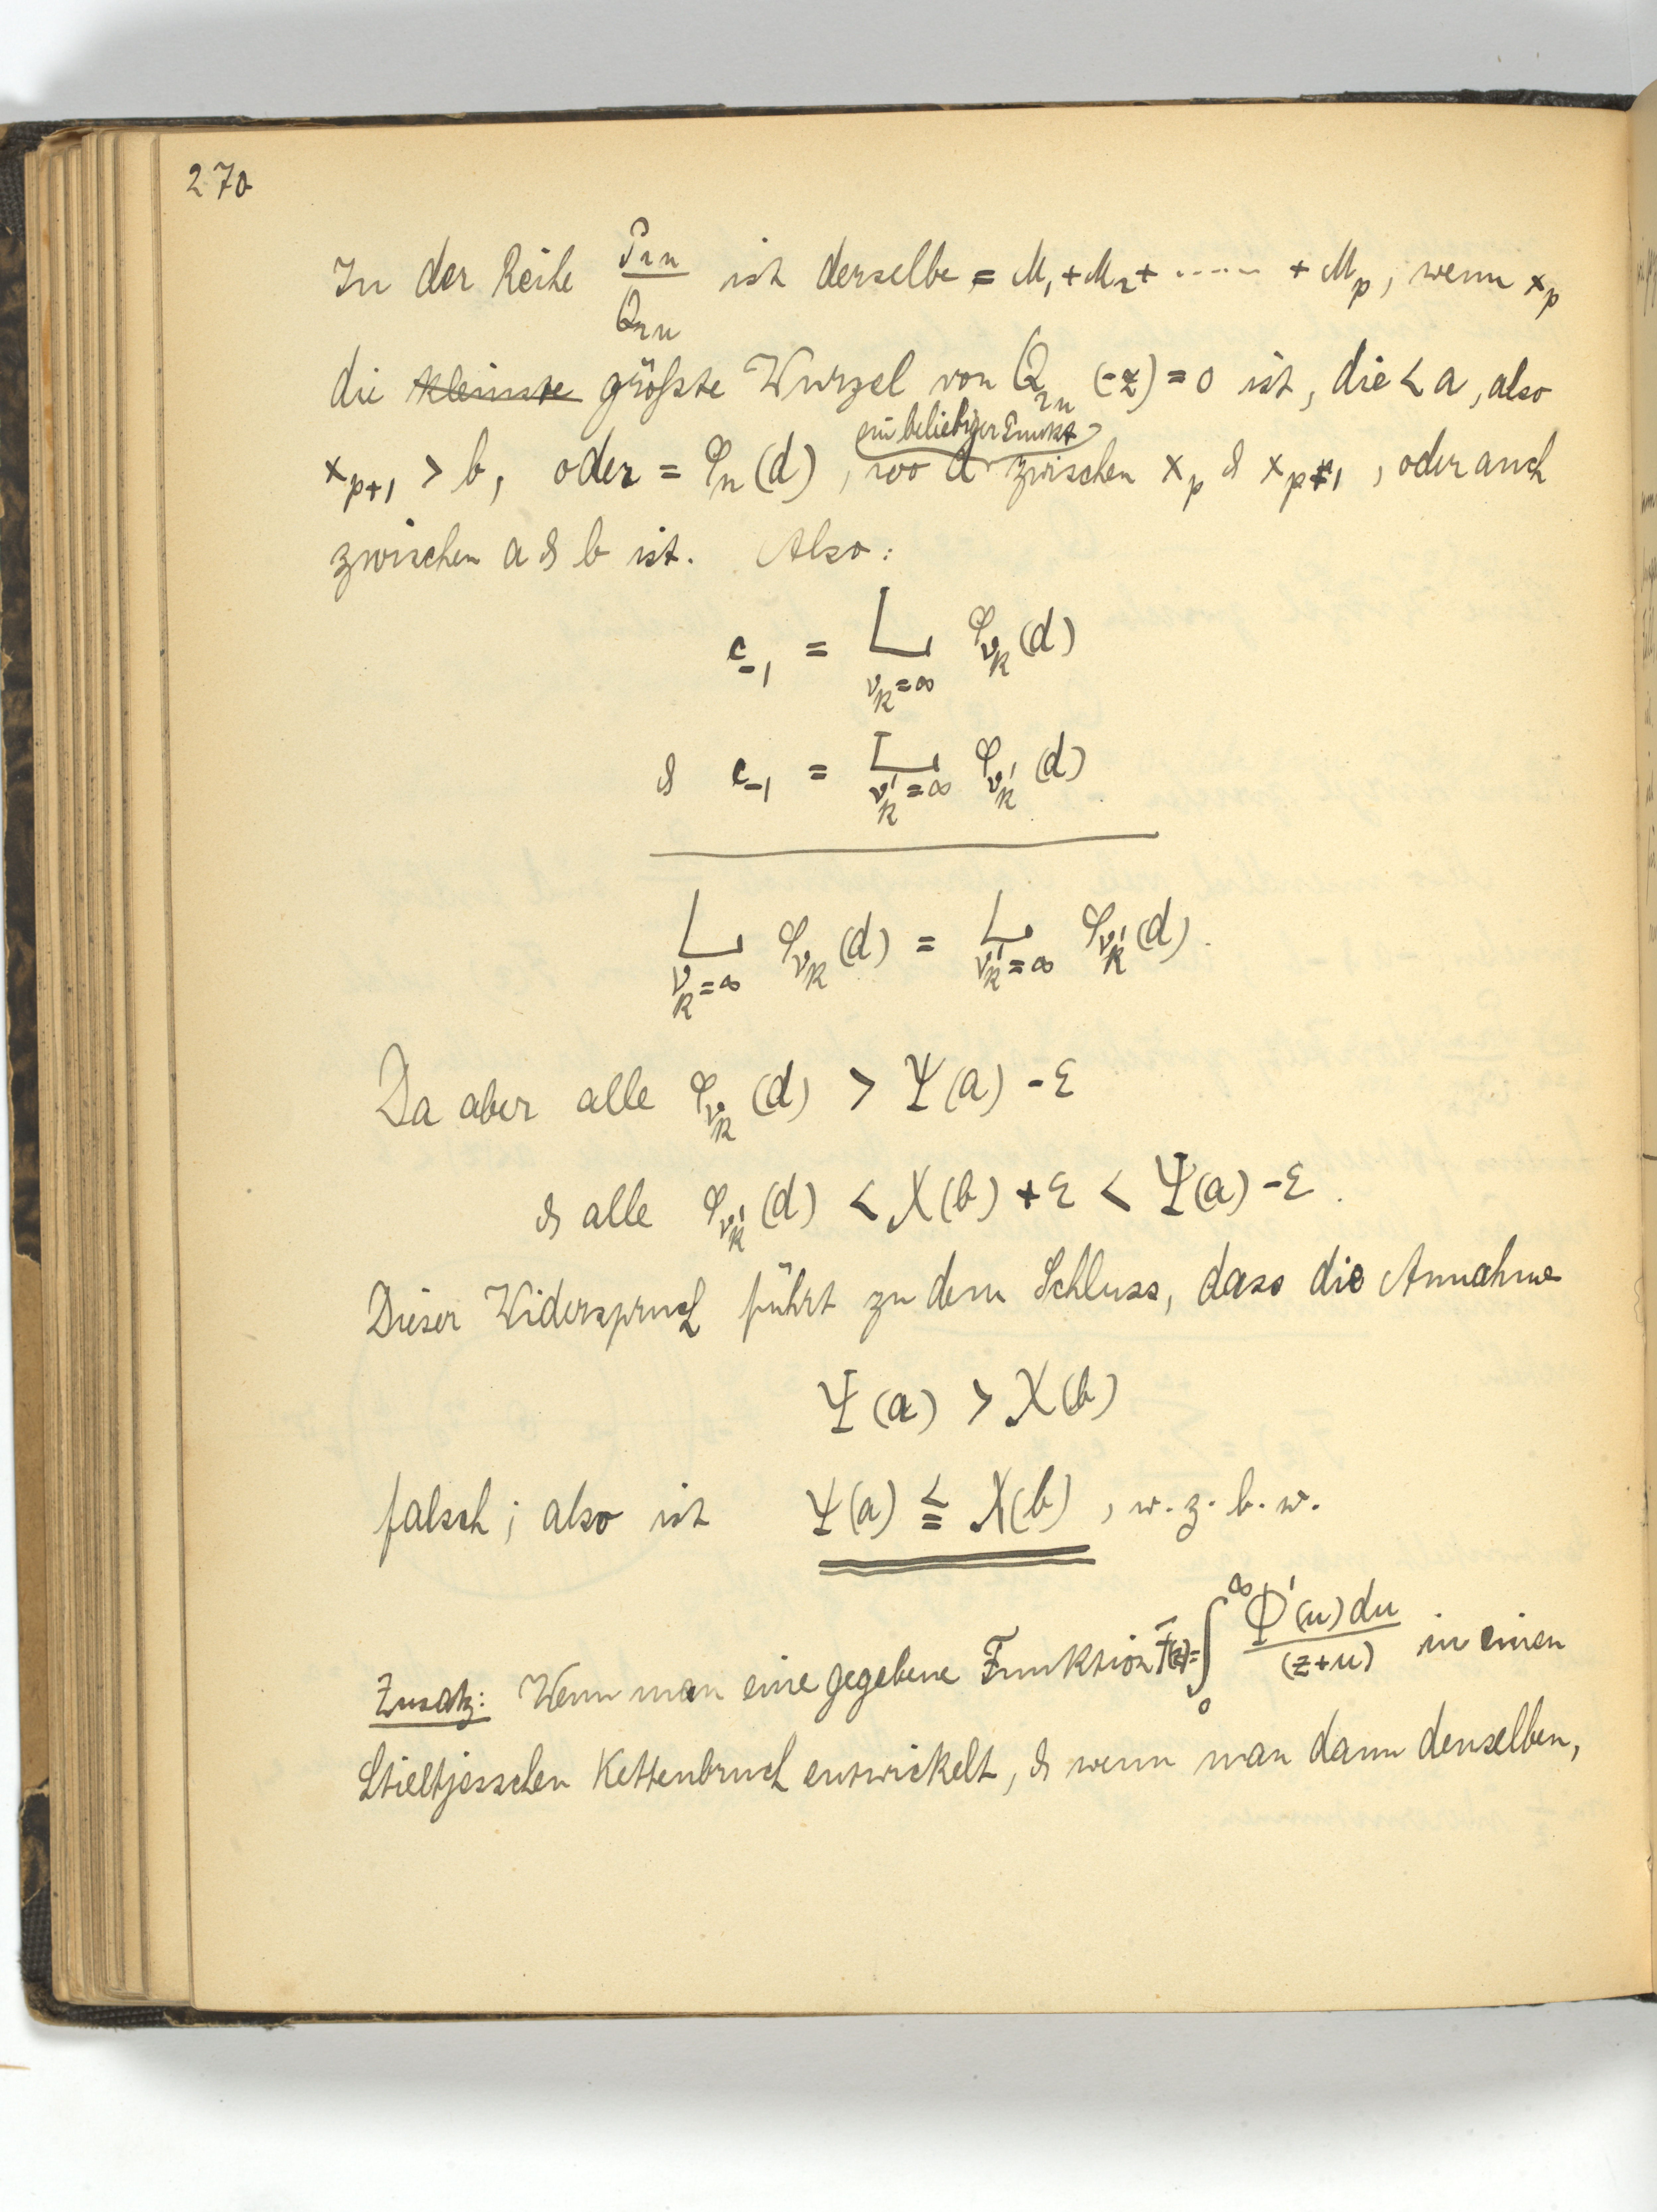 270
In der Reihe P₂ₙ/Q₂ₙ ist derselbe = M₁ + M₂ + ······ + Mₚ, wenn xₚ
die ~~kleinste~~ größte Wurzel von Q₂ₙ(-z) = 0 ist, die < a, also
ein beliebiger Punkt
xₚ₊₁ > b, oder = φₙ(d), wo d zwischen xₚ & xₚ₊₁, oder auch
zwischen a & b ist. Also:
c₋₁ = L_{ν_k=∞} φ_{ν_k}(d)
& c₋₁ = L_{ν'_k=∞} φ_{ν'_k}(d)
L_{ν_k=∞} φ_{ν_k}(d) = L_{ν'_k=∞} φ_{ν'_k}(d).
Da aber alle φ_{ν_k}(d) > Ψ(a) - ε
& alle φ_{ν'_k}(d) < X(b) + ε < Ψ(a) - ε.
Dieser Widerspruch führt zu dem Schluss, dass die Annahme
Ψ(a) > X(b)
falsch; also ist Ψ(a) ≦ X(b), w. z. b. w.
Zusatz: Wenn man eine gegebene Funktion F(z) = ∫₀^∞ Φ'(u)du/(z+u) in einen
Stieltjesschen Kettenbruch entwickelt, & wenn man dann denselben,